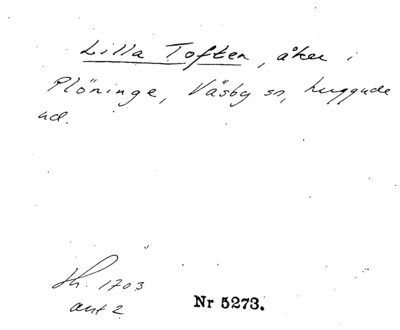 Lilla Toften, åker i
Plöninge, Väsby sn, Luggude
hd.
Lh. 1703
ant 2
Nr 5273.